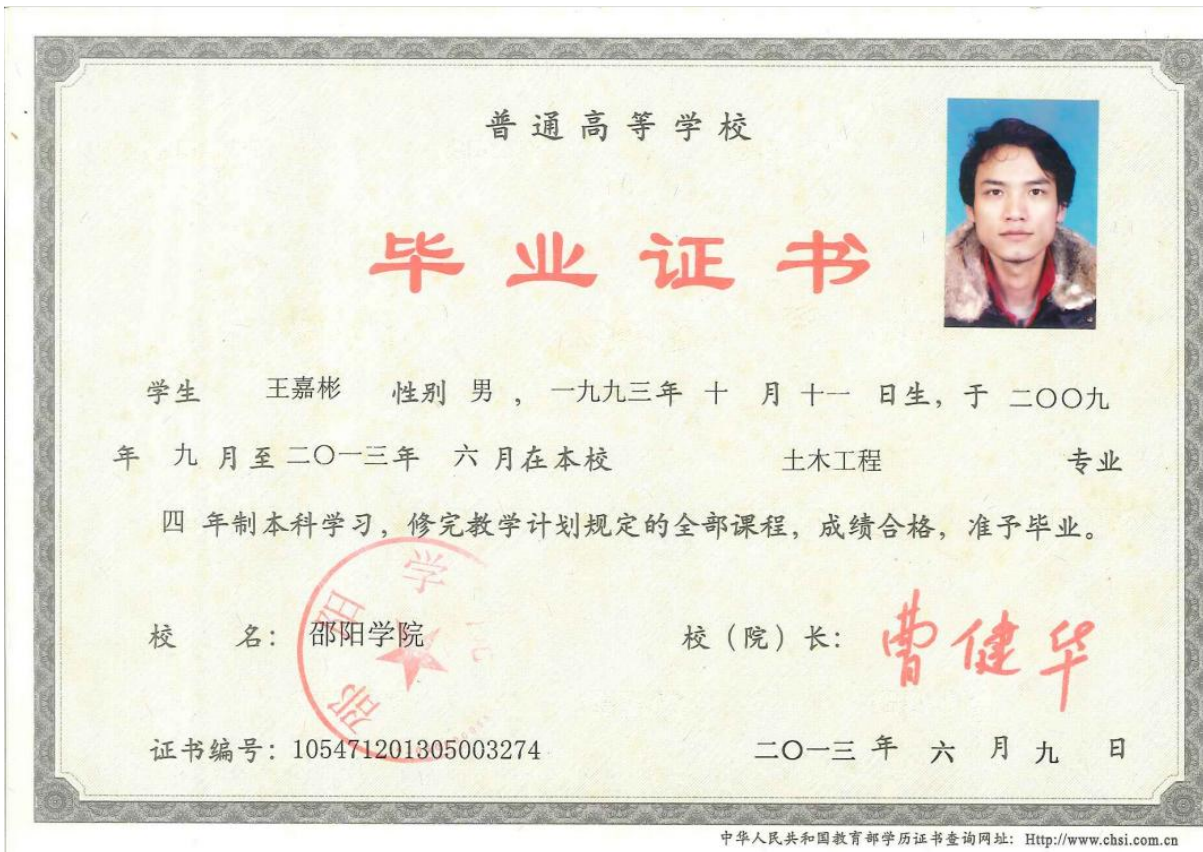 普通高等学校
毕业证书
学生 王嘉彬 性别 男 ,一九九三年 十 月 十一 日生,于 二〇〇九
年 九 月至二〇一三年 六 月在本校 土木工程 专业
四 年制本科学习,修完教学计划规定的全部课程,成绩合格,准予毕业。
校 名: 邵阳学院 校(院)长: 曹健华
邵阳学院
证书编号:105471201305003274 二〇一三 年 六 月 九 日
中华人民共和国教育部学历证书查询网址:Http://www.chsi.com.cn